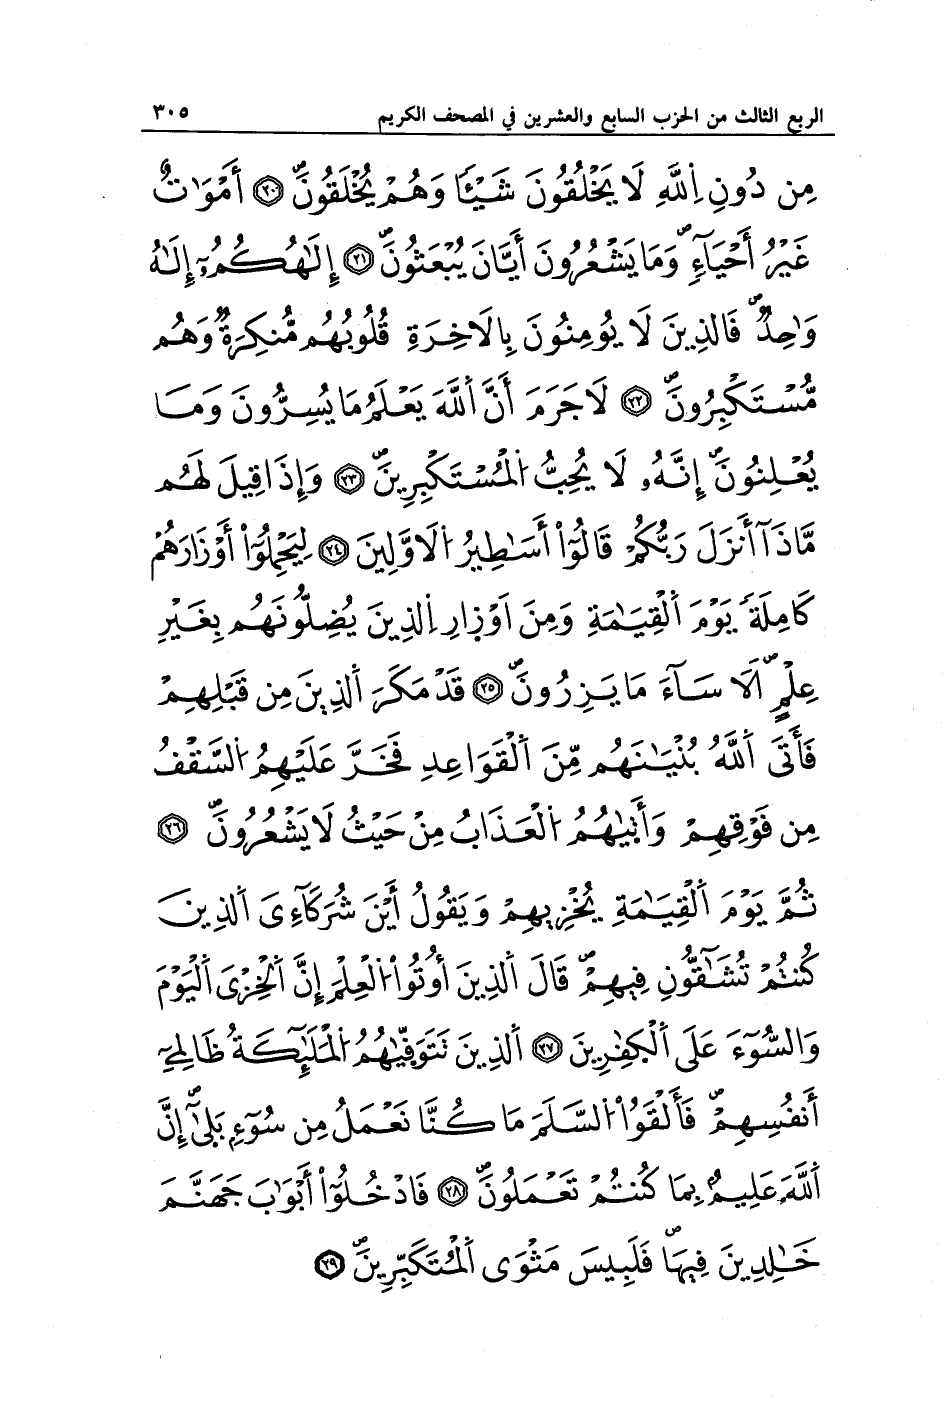 الربع الثالث من الحزب السابع والعشرين في المصحف الكريم ٣٠٥
مِن دُونِ اِللَّهِ لَا يَخْلُقُونَ شَيْـٔاً وَهُمْ يُخْلَقُونَۖ ٢٠ أَمْوَٰتٌ
غَيْرُ أَحْيَآءٖۖ وَمَا يَشْعُرُونَ أَيَّانَ يُبْعَثُونَۖ ٢١ إِلَٰهُكُمُۥٓ إِلَٰهٌ
وَٰحِدٌۖ فَالذِينَ لَا يُومِنُونَ بِالَاخِرَةِ قُلُوبُهُم مُّنكِرَةٌ وَهُم
مُّسْتَكْبِرُونَۖ ٢٢ لَا جَرَمَ أَنَّ اَللَّهَ يَعْلَمُ مَا يُسِرُّونَ وَمَا
يُعْلِنُونَۖ إِنَّهُۥ لَا يُحِبُّ اُلْمُسْتَكْبِرِينَۖ ٢٣ وَإِذَا قِيلَ لَهُم
مَّاذَآ أَنزَلَ رَبُّكُمْ قَالُوٓاْ أَسَٰطِيرُ اُلَاوَّلِينَ ٢٤ لِيَحْمِلُوٓاْ أَوْزَارَهُمْ
كَامِلَةً يَوْمَ اَلْقِيَٰمَةِ وَمِنَ اَوْزِارِ اِلذِينَ يُضِلُّونَهُم بِغَيْرِ
عِلْمٍۖ اَلَا سَآءَ مَا يَزِرُونَۖ ٢٥ قَدْ مَكَرَ اَلذِينَ مِن قَبْلِهِمْ
فَأَتَى اَللَّهُ بُنْيَٰنَهُم مِّنَ اَلْقَوَاعِدِ فَخَرَّ عَلَيْهِمُ اُلسَّقْفُ
مِن فَوْقِهِمْ وَأَتَيٰهُمُ اُلْعَذَابُ مِنْ حَيْثُ لَا يَشْعُرُونَۖ ٢٦
ثُمَّ يَوْمَ اَلْقِيَٰمَةِ يُخْزِيهِمْ وَيَقُولُ أَيْنَ شُرَكَآءِىَ اَلذِينَ
كُنتُمْ تُشَٰٓقُّونِ فِيهِمْۖ قَالَ اَلذِينَ أُوتُواْ اُلْعِلْمَ إِنَّ اَلْخِزْىَ اَلْيَوْمَ
وَالسُّوٓءَ عَلَى اَلْكٰفِرِينَ ٢٧ اَلذِينَ تَتَوَفّيٰهُمُ اُلْمَلَٰٓئِكَةُ ظَالِمِےٓ
أَنفُسِهِمْۖ فَأَلْقَوُاْ اُلسَّلَمَ مَا كُنَّا نَعْمَلُ مِن سُوٓءِۢۖ بَلَىٰٓۖ إِنَّ
اَللَّهَ عَلِيمُۢ بِمَا كُنتُمْ تَعْمَلُونَۖ ٢٨ فَادْخُلُوٓاْ أَبْوَٰبَ جَهَنَّمَ
خَٰلِدِينَ فِيهَاۖ فَلَبِيسَ مَثْوَى اَلْمُتَكَبِّرِينَۖ ٢٩